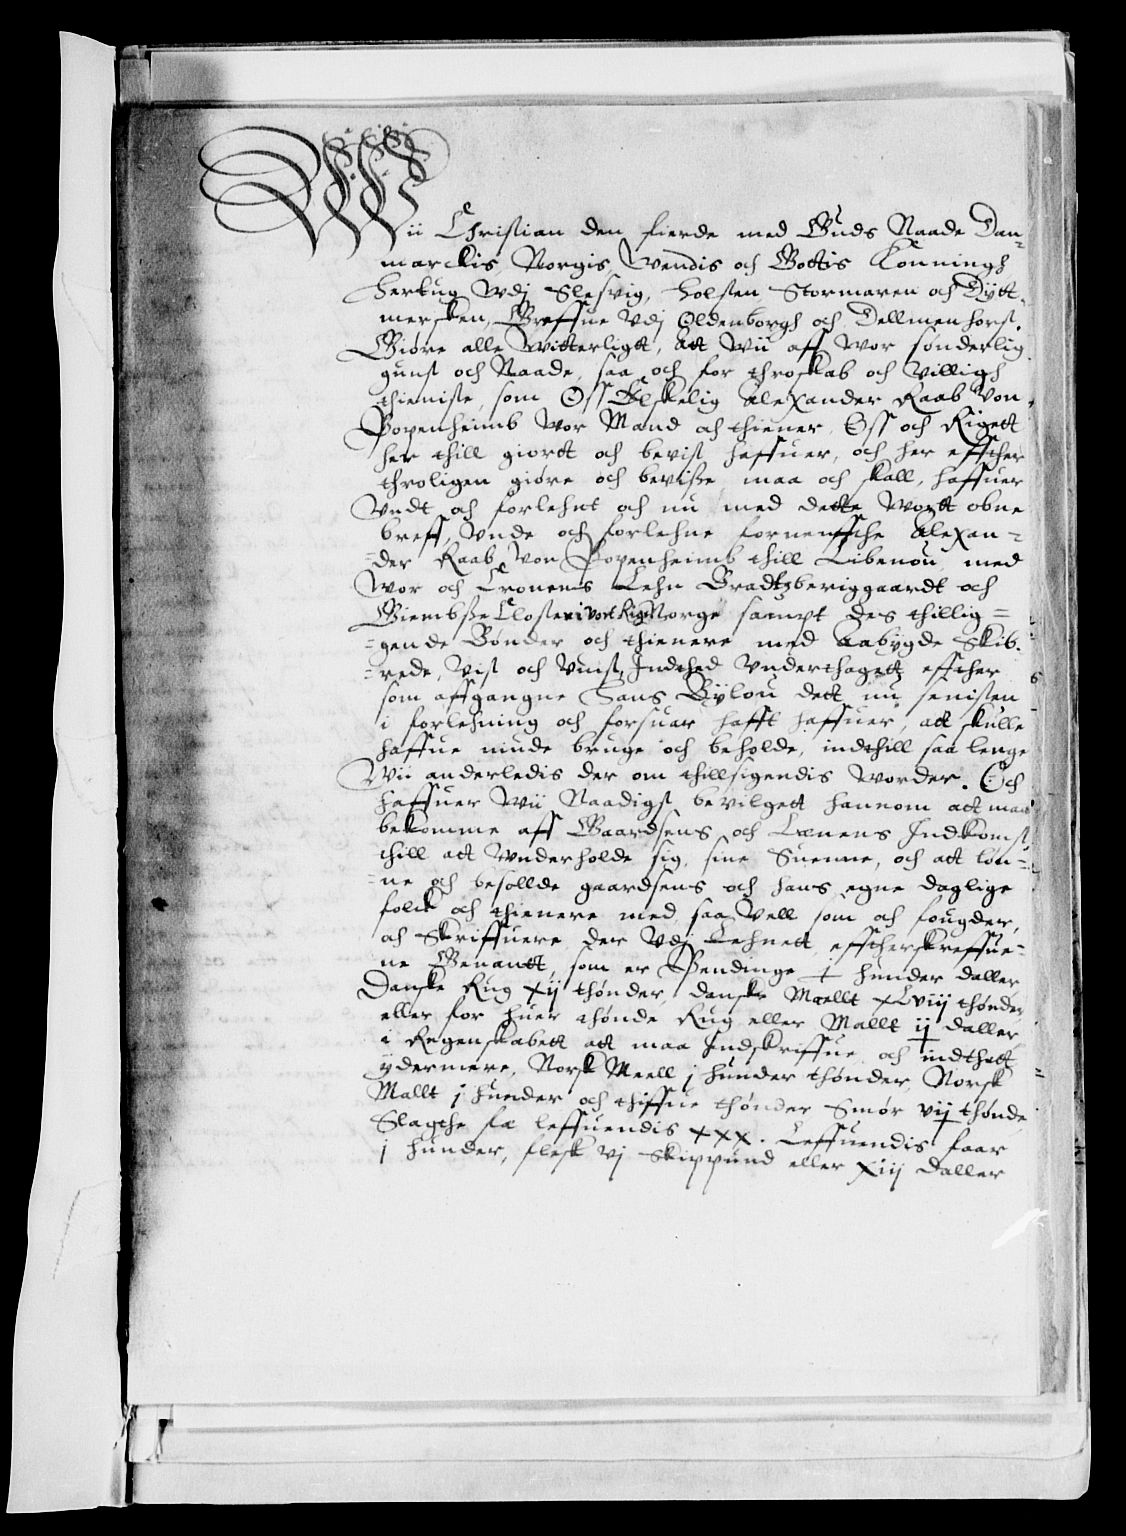 Wii Christian den fierde med Guds Naade Dan-
marckis, Norgis, Wendis och Gottis Konningh
Hertug Vdj Slesvig, Holsten Stormaren och Dytt-
mersken, Greffue Vdj Oldenborgh och Dellmenhorst.
Giøre alle Witterligt, Att Wii aff Wor sønderlig
gunst och Naade, saa och for throskab och Villigh
thieniste, som Oss Elskelig Alexander Raab Von
Popenheimb Wor Mand och thiener, Oss och Rigett
her thill giortt och bevist haffuer, och her effther
throligen giøre och bevisse maa och skall, haffuer
Vndt och forlehnt och nu med dette Wortt obne
breff, Vnde och forlehne fornenffthe Alexan-
=der Raab Von Popenheimb thill Libenou, med
Wor och Cronens Lehn Bradtzberiggaardt och
Giembsse Closter i vort Rige Norge sampt des thillig=
=gende Bønder och thienere med Aabygde Skib-
=rede, Vist och Vuist, Indthed Vnderthagett, effther
som affgangne Hans Bylou dett nu senisten
i forlehning och forsuar hafft haffuer, att skulle
haffue niude bruge och beholde, indthill saa lenge
Wii anderledis der om thillsigendis Worder. Och
haffuer Wii Naadigst bevilgett hannom att maa
bekomme aff Gaardsens och Lænens Indkomst
thill att Vnderholde sig, sine Suenne, och att løn-
=ne och besollde gaardsens och hans egne daglige
folck och thienere med, saa Vell som och fougder,
och Skriffuere der Vdj Lehnett, effterskreffue-
ne Benantt, som er Pendinge hunder daller
Danske Rug xij thønder, danske Maellt xLviij thønder
eller for huer thønde Rug eller Mallt ij daller
i Regenskabett att maa Indskriffue och indthett
ydermere, Norsk Meell j hunder thønder, Norsk
Mallt j hunder och thiffue thønder Smør vij thønde
Slagthe fæ leffuendis xxx. Leffuendis faar
j hunder, flesk vj Skippund eller xiij daller